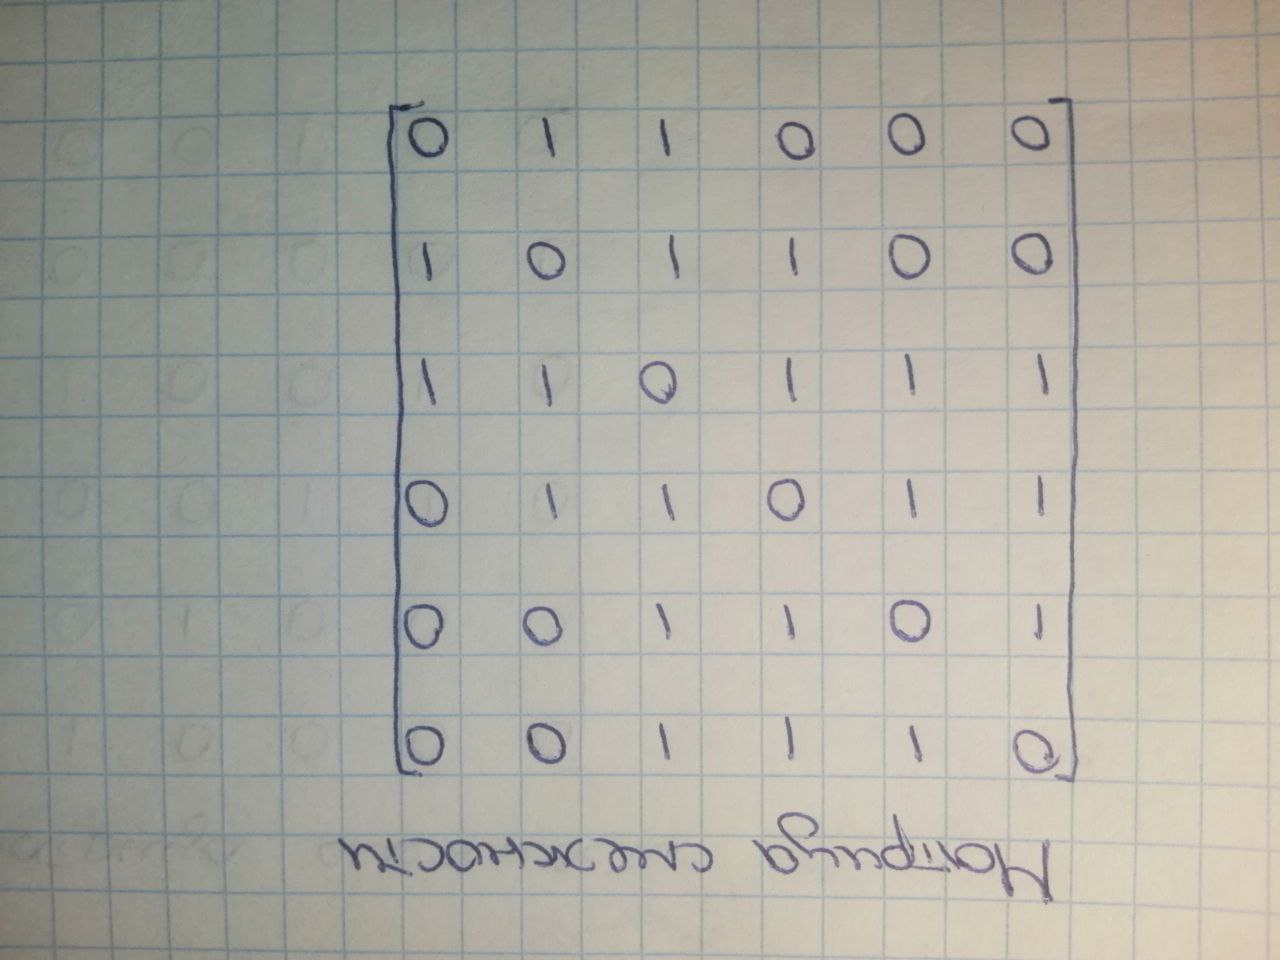 Матрица смежности
0 1 1 1 0 0
1 0 1 1 0 0
1 1 0 1 1 0
1 1 1 0 1 1
0 0 1 1 0 1
0 0 0 1 1 0